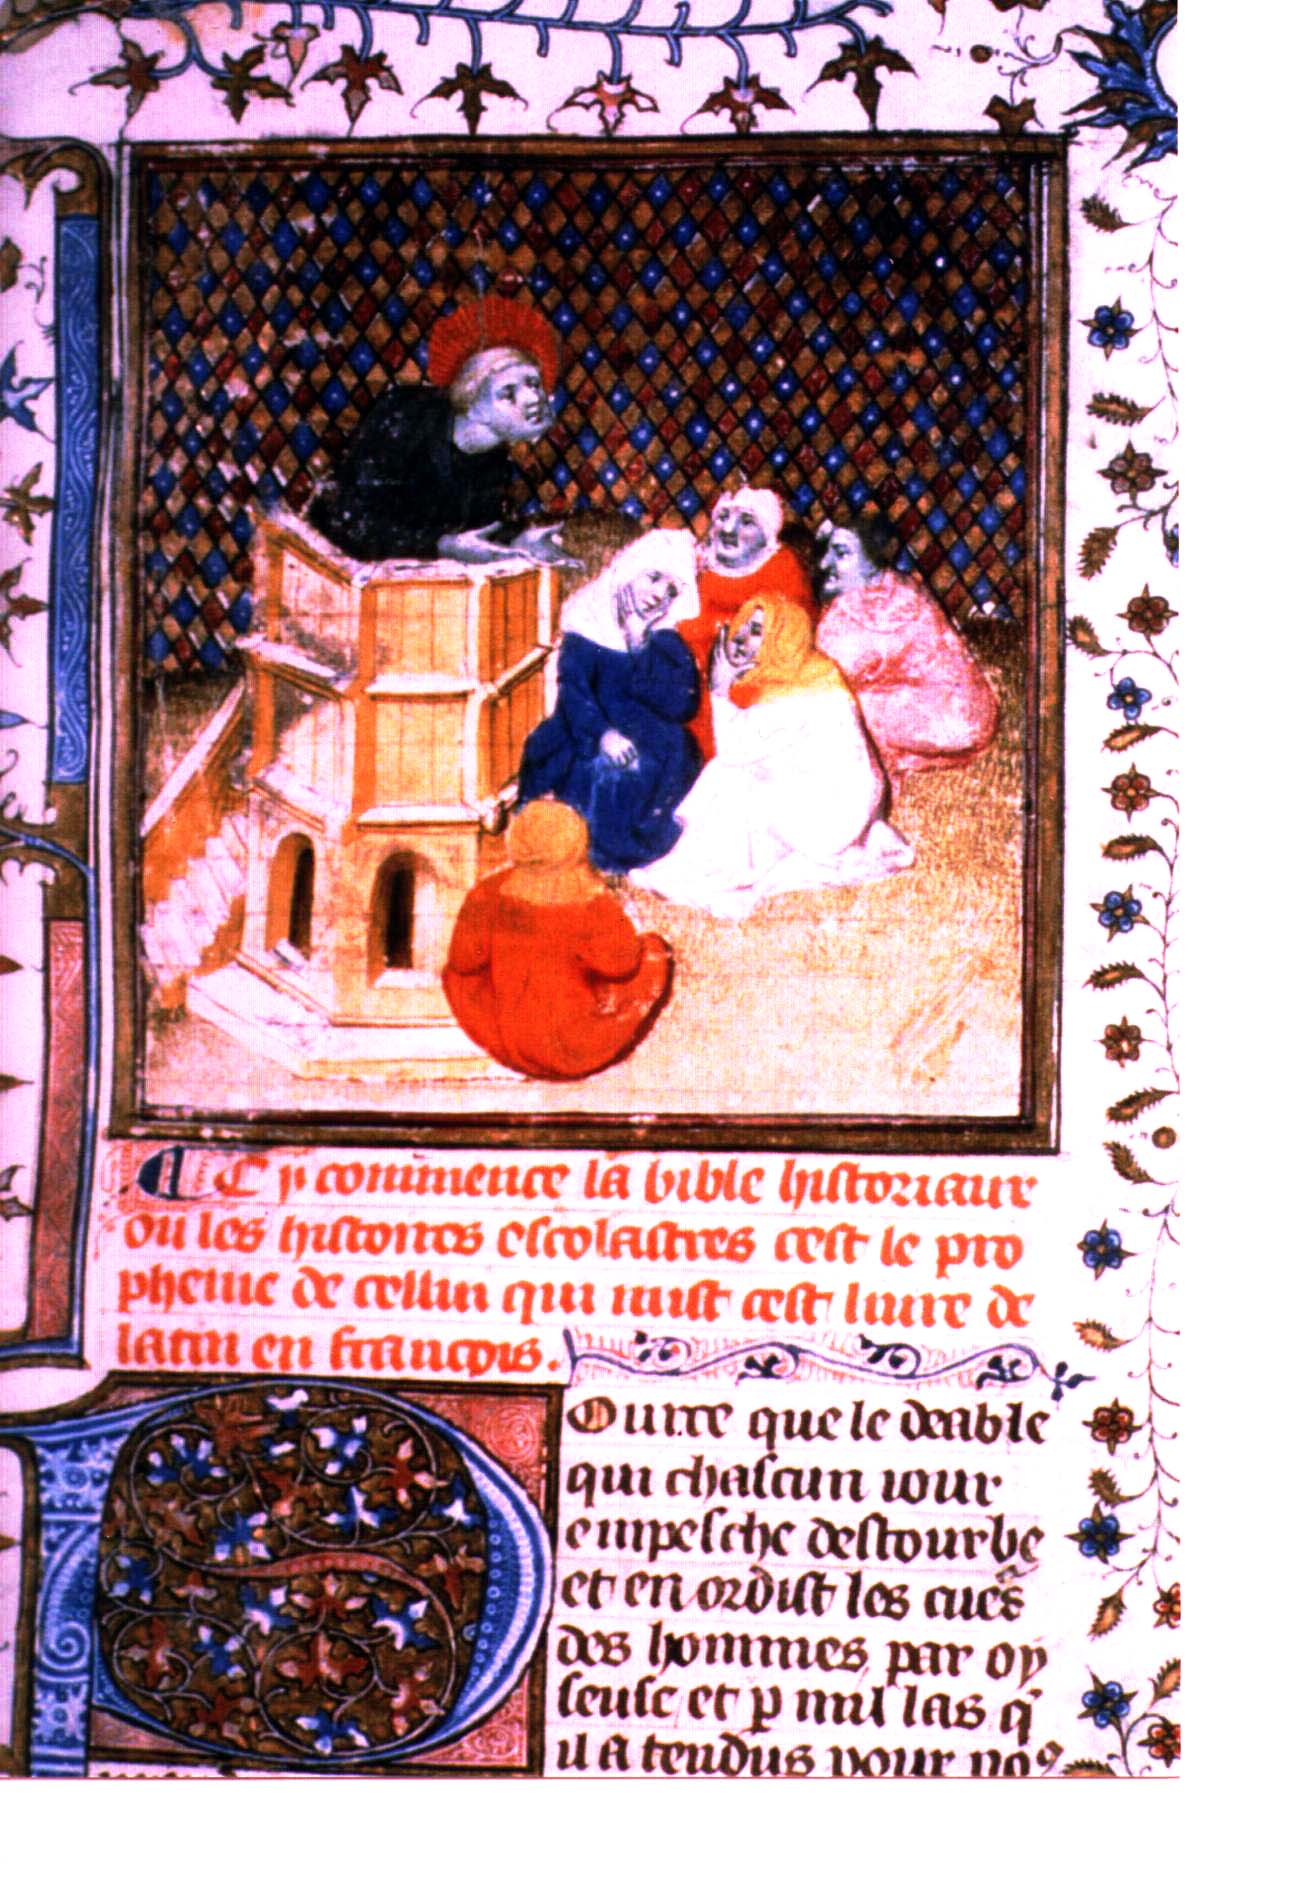 Cy commence la bible historiaux
ou les histoires escolastres cest le pro
pheme de cellui qui mist cest liure de
latin en francois.
Pource que le deable
qui chascun iour
empesche destourbe
et en ordist les cuers
des hommes par oy
seuse et p mil las q
il a tendus pour no⁹